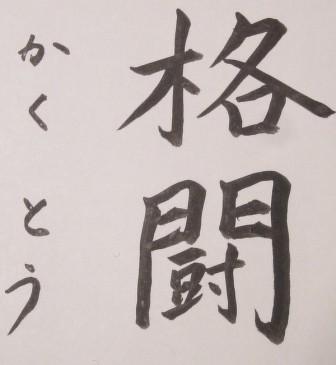 格闘
かくとう